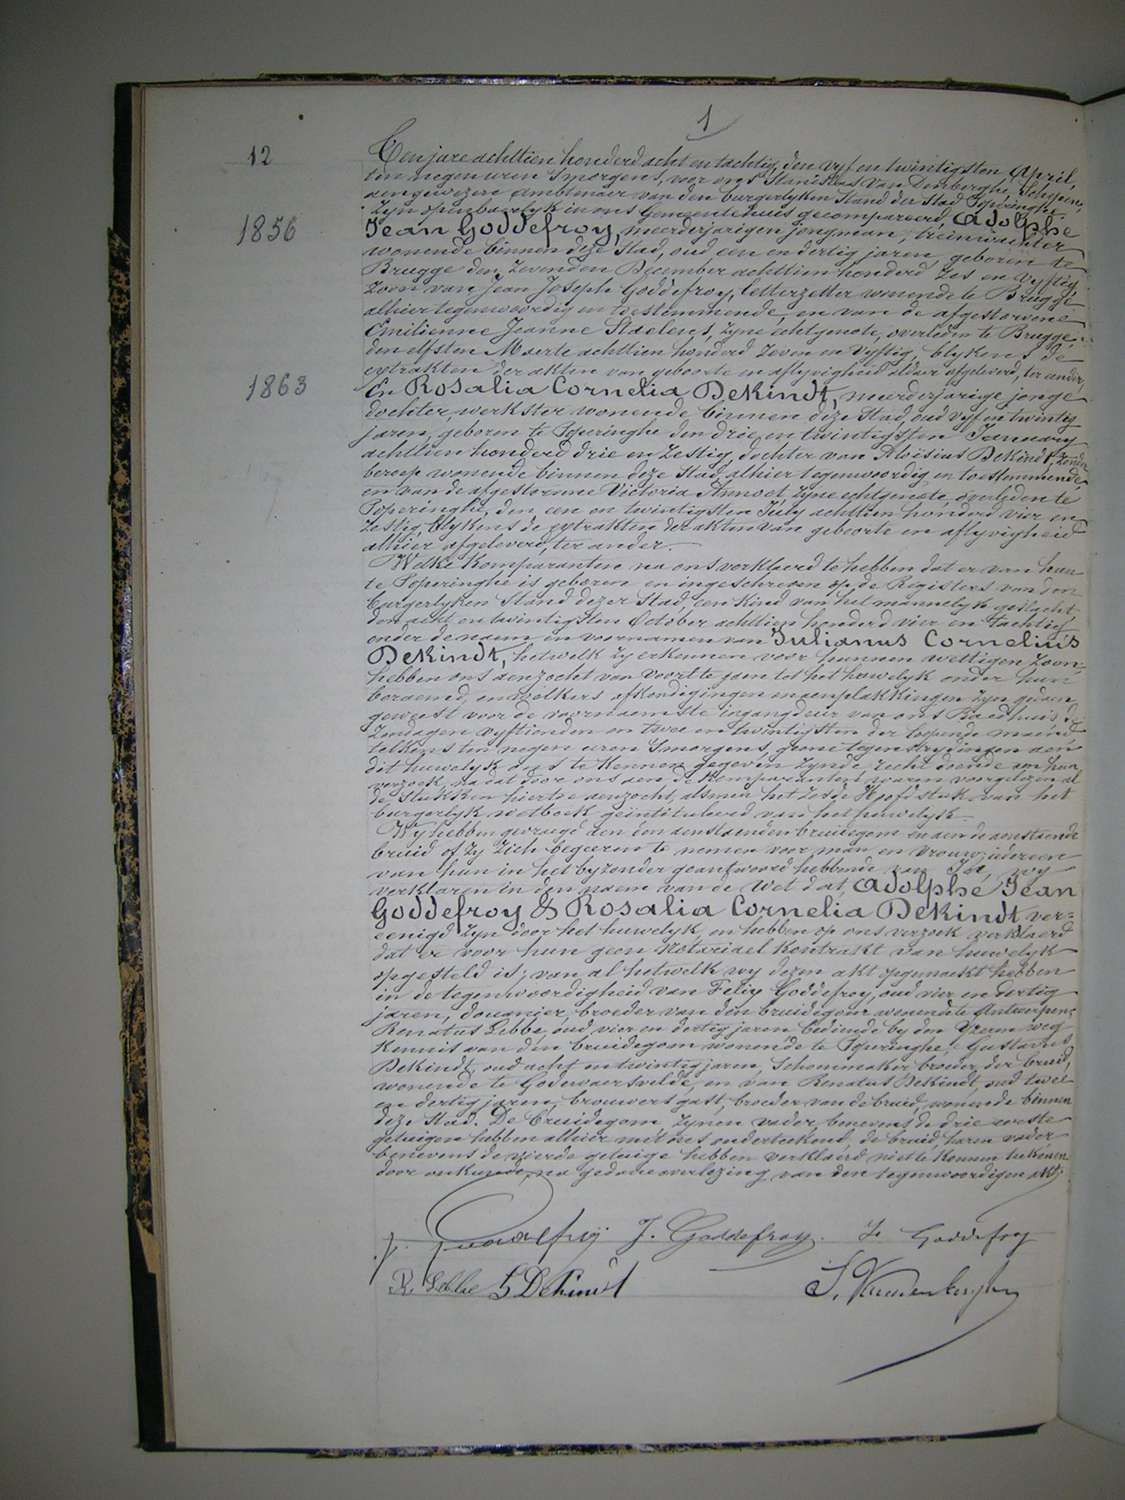 1
12
Ten jare achttien honderd acht en tachtig, den vyf en twintigsten April,
ten negen uren s'morgens, voor ons Stanislas Van Denberghe, Schepen,
aengewezene ambtenaer van den burgerlyken Stand der Stad Poperinghe
zyn openbaerlyk in ons Gemeentehuis gecompareerd, Adolphe
1856
Jean Goddefroy, meerderjarigen jongman, treinwachter
wonende binnen deze Stad, oud een en dertig jaren, geboren te
Brugge den zevenden December achttien honderd zes en vyftig,
Zoon van Jean Joseph Goddefroy, letterzetter wonende te Brugge
alhier tegenwoordig en toestemmende, en van de afgestorvene
Emilienne Jeanne Staelens, zyne echtgenote, overleden te Brugge
den elfsten Maerte achttien honderd zeven en vyftig, blykens de
extrakten der akten van geboorte en aflyvigheid aldaer afgeleverd, ter ander,
1863
En Rosalia Cornelia Dekindt, meerderjarige jonge
dochter werkster wonende binnen deze Stad, oud vyf en twintig
jaren, geboren te Poperinghe den drie en twintigsten January
achttien honderd drie en zestig, dochter van Aloïsius Dekindt, zonder
beroep wonende binnen deze Stad alhier tegenwoordig en toestemmende
en van de afgestorvene Victoria Annoot zyne echtgenote, overleden te
Poperinghe, den een en twintigsten July achttien honderd vier en
zestig, blykens de extrakten der akten van geboorte en aflyvigheid
alhier afgeleverd, ter ander.
Welke Komparanten na ons verklaerd te hebben dat er van hun
te Poperinghe is geboren en ingeschreven op de Registers van den
burgerlyken Stand dezer Stad, een Kind van het mannelyk geslacht
den acht en twintigsten October achttien honderd vier en tachtig
onder de naem en voornamen van Julianus Cornelius
Dekindt, hetwelk zy erkennen voor hunnen wettigen Zoon,
hebben ons aenzocht van voorts te gaen tot het huwelyk onder hun
beraemd, en welkers afkondigingen en aenplakkingen zyn gedaen
geweest voor de voornaemste ingangdeur van ons Raedhuis de
Zondagen vyftienden en twee en twintigsten der loopende maend
telkens ten negen uren s'morgens, geene tegenstrydingen aen
dit huwelyk ons te kennen gegeven zynde, recht doende aen hun
verzoek, na dat door ons aen de Komparanten waren voorgelezen al
de stukken hiertoe aenzocht, alsmede het zesde Hoofdstuk van het
burgerlyk wetboek geïntituleerd van het huwelyk.
Wy hebben gevraegd aen den aenstaenden bruidegom en aen de aenstaende
bruid of zy zich begeeren te nemen voor man en vrouw, iedereen
van hun in het byzonder geantwoord hebbende van Ja, wy
verklaren in den naem van de wet dat Adolphe Jean
Goddefroy & Rosalia Cornelia Dekindt ver=
eenigd zyn door het huwelyk, en hebben op ons verzoek verklaerd
dat er voor hun geen Notariael Kontrakt van huwelyk
opgesteld is; van al hetwelk wy dezen akt opgemaekt hebben
in de tegenwoordigheid van Felix Goddefroy, oud vier en dertig
jaren, douanier, broeder van den bruidegom wonende te Antwerpen,
Renatus Lebbe, oud vier en dertig jaren bediende by den Yzeren weg
Kennis van den bruidegom wonende te Poperinghe, Gustavus
Dekindt, oud acht en twintig jaren, Schoenmaker broeder der bruid,
wonende te Godewaersvelde, en van Renatus Dekindt, oud twee
en dertig jaren, brouwersgast, broeder van de bruid, wonende binnen
deze Stad. De bruidegom, zynen vader, benevens de drie eerste
getuigen hebben alhier met ons onderteekend, de bruid, haren vader
benevens de vierde getuige hebben verklaerd niet te kunnen teekenen
door onkunde, na gedane voorlezing van den tegenwoordigen akt.
J. Goddefroy. F. Goddefroy
R. Lebbe G Dekindt S. Vandenberghe